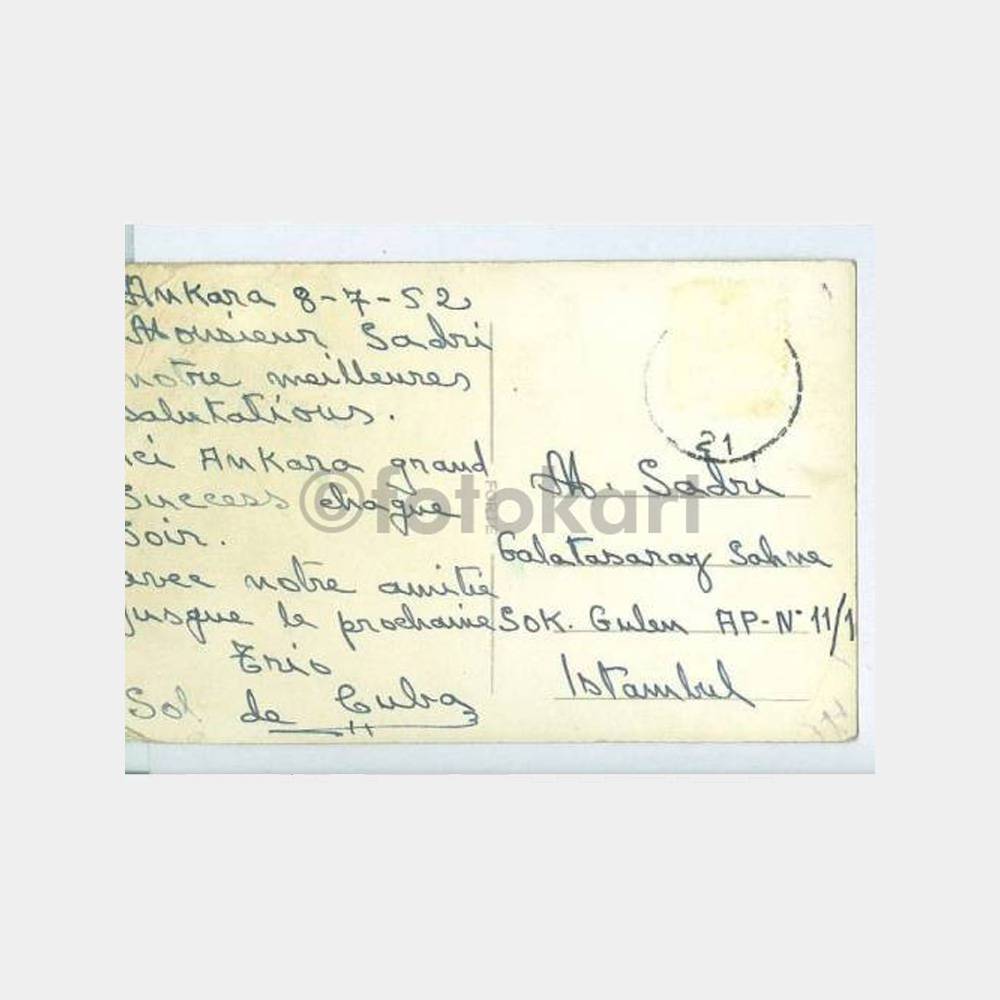 Ankara 8-7-52
Monsieur Sadri
notre meilleures
salutations.
ici Ankara grand
success chaque
soir.
avec notre amitie
jusque le prochaine
Trio
Sol de Cuba
21
M. Sadri
Galatasaray Sahne
SOK. Gulen AP-N° 11/1
Istambul
FORTE
©fotokart